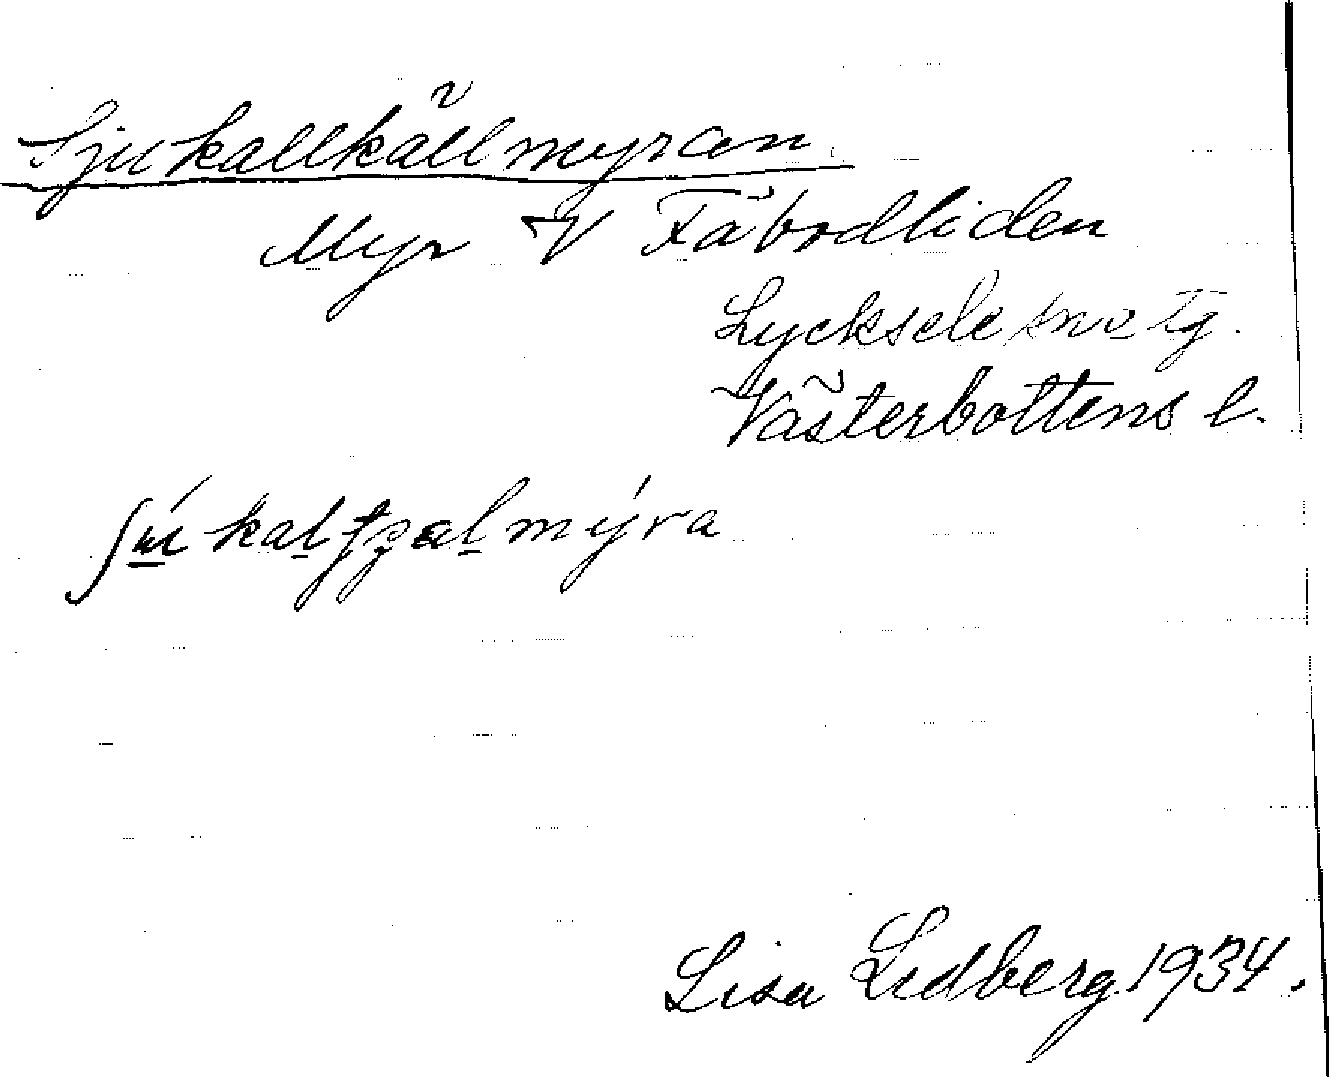 Sjukallkällmyran
Myr V Fäbodliden
Lycksele snötg.
Västerbottens l.
Lisa Lidberg 1934.